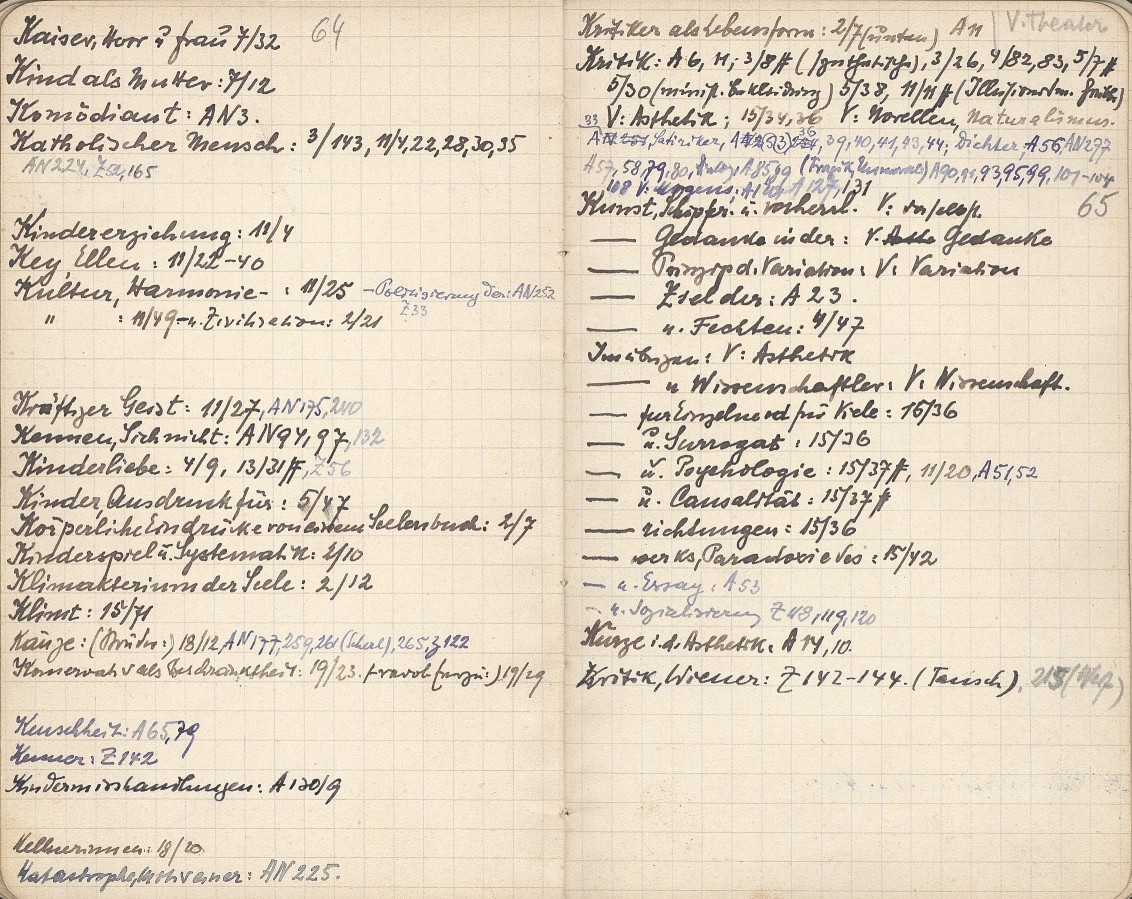 Kaiser, Herr u frau 7/32 64
Kind als Mutter: 7/12
Komödiant: AN3.
Katholischer Mensch: 3/143, 11/4, 22, 28, 30, 35
AN224, Z52, 165
Kindererziehung: 11/4
Key, Ellen: 11/22-40
Kultur, Harmonie-: 11/25 - Politisierung der: AN252
Z33
" : 11/49 - u. Zivilisation: 2/21
Kräftiger Geist: 11/27, AN175, 240
Kennen, Sich nicht: AN94, 97, 132
Kinderliebe: 4/9, 13/31ff, Z56
Kinder, Ausdruck für: 5/47
Körperliche Eindrücke von einem Seelenbuch: 2/7
Kinderspiel u. Systematik: 2/10
Klimakterium der Seele: 2/12
Klimt: 15/71
Käuze: (Brüder:) 18/12, AN177, 259, 261 (Scherl), 265, Z122
Konservativ als Beschränktheit: 19/23. 19/29
Keuschheit: A65, 79
Kenner: Z142
Kindermisshandlungen: A130/9
Kellnerinnen: 18/20
Katastrophe, Motiv einer: AN225.
Kritiker als Lebensform: 2/7 (unten) A11 V. Theater
Kritik: A6, 11; 3/8ff (synthetische), 3/26, 4/82, 83, 5/7ff
5/30 5/38, 11/11ff
33 V: Ästhetik; 15/34, 36 V: Novellen, Naturalismus.
Satiriker, 39, 40, 41, 43, 44; Dichter, A56, AN297
A57, 58, 79, 80, A90, 91, 93, 95, 99, 101-104
108 V: A127, 131
Kunst, Schöpfer. u. 65
— Gedanke in der: V. Gedanke
— Prinzip d. Variation: V: Variation
— Ziel der: A23.
— u. Fechten: 4/47
Im übrigen: V: Ästhetik
— u Wissenschaftler: V: Wissenschaft.
— für Einzelne od für Viele: 15/36
— u. Surrogat: 15/36
— u. Psychologie: 15/37ff, 11/20, A51, 52
— u. Causalität: 15/37ff
— richtungen: 15/36
— werks, Paradoxie des: 15/42
— u. Essay: A53
— u. Sozialisierung Z118, 119, 120
Kürze i. d. Ästhetik: A14, 10.
Kritik, Wiener: Z142-144. (Tausch)